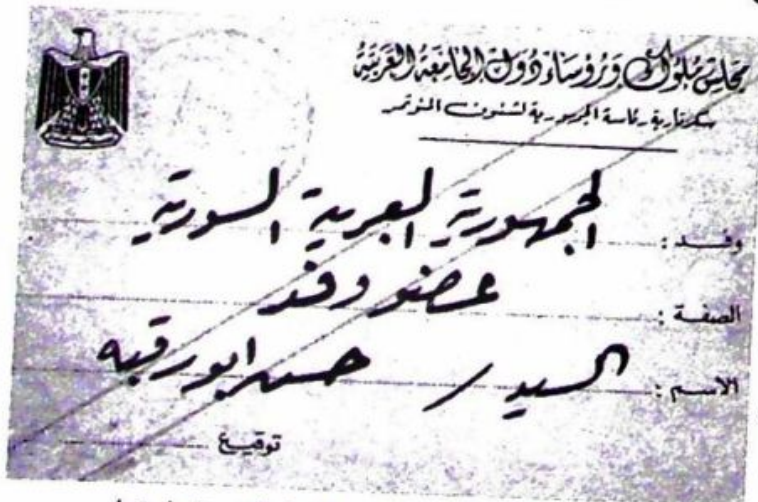 مجلس ملوك ورؤساء دول الجامعة العربية
سكرتارية رئاسة الجمهورية لشئون المؤتمر
وفد : الجمهورية العربية السورية
الصفة : عضو وفد
الاسم : السيد / حسن ابو رقبه
توقيع